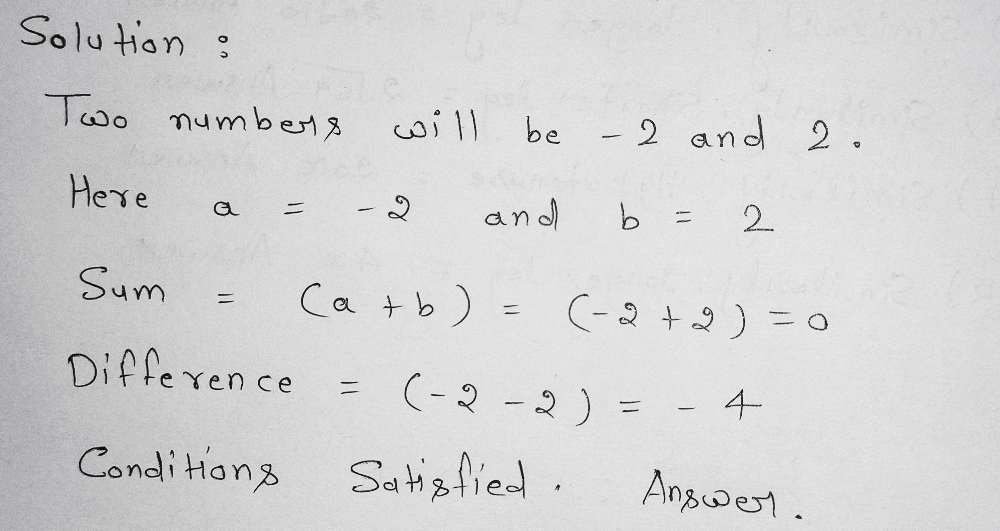 Solution :
Two numbers will be - 2 and 2.
Here a = - 2 and b = 2
Sum = (a + b) = (-2 + 2) = 0
Difference = (-2 - 2) = - 4
Conditions Satisfied. Answer.